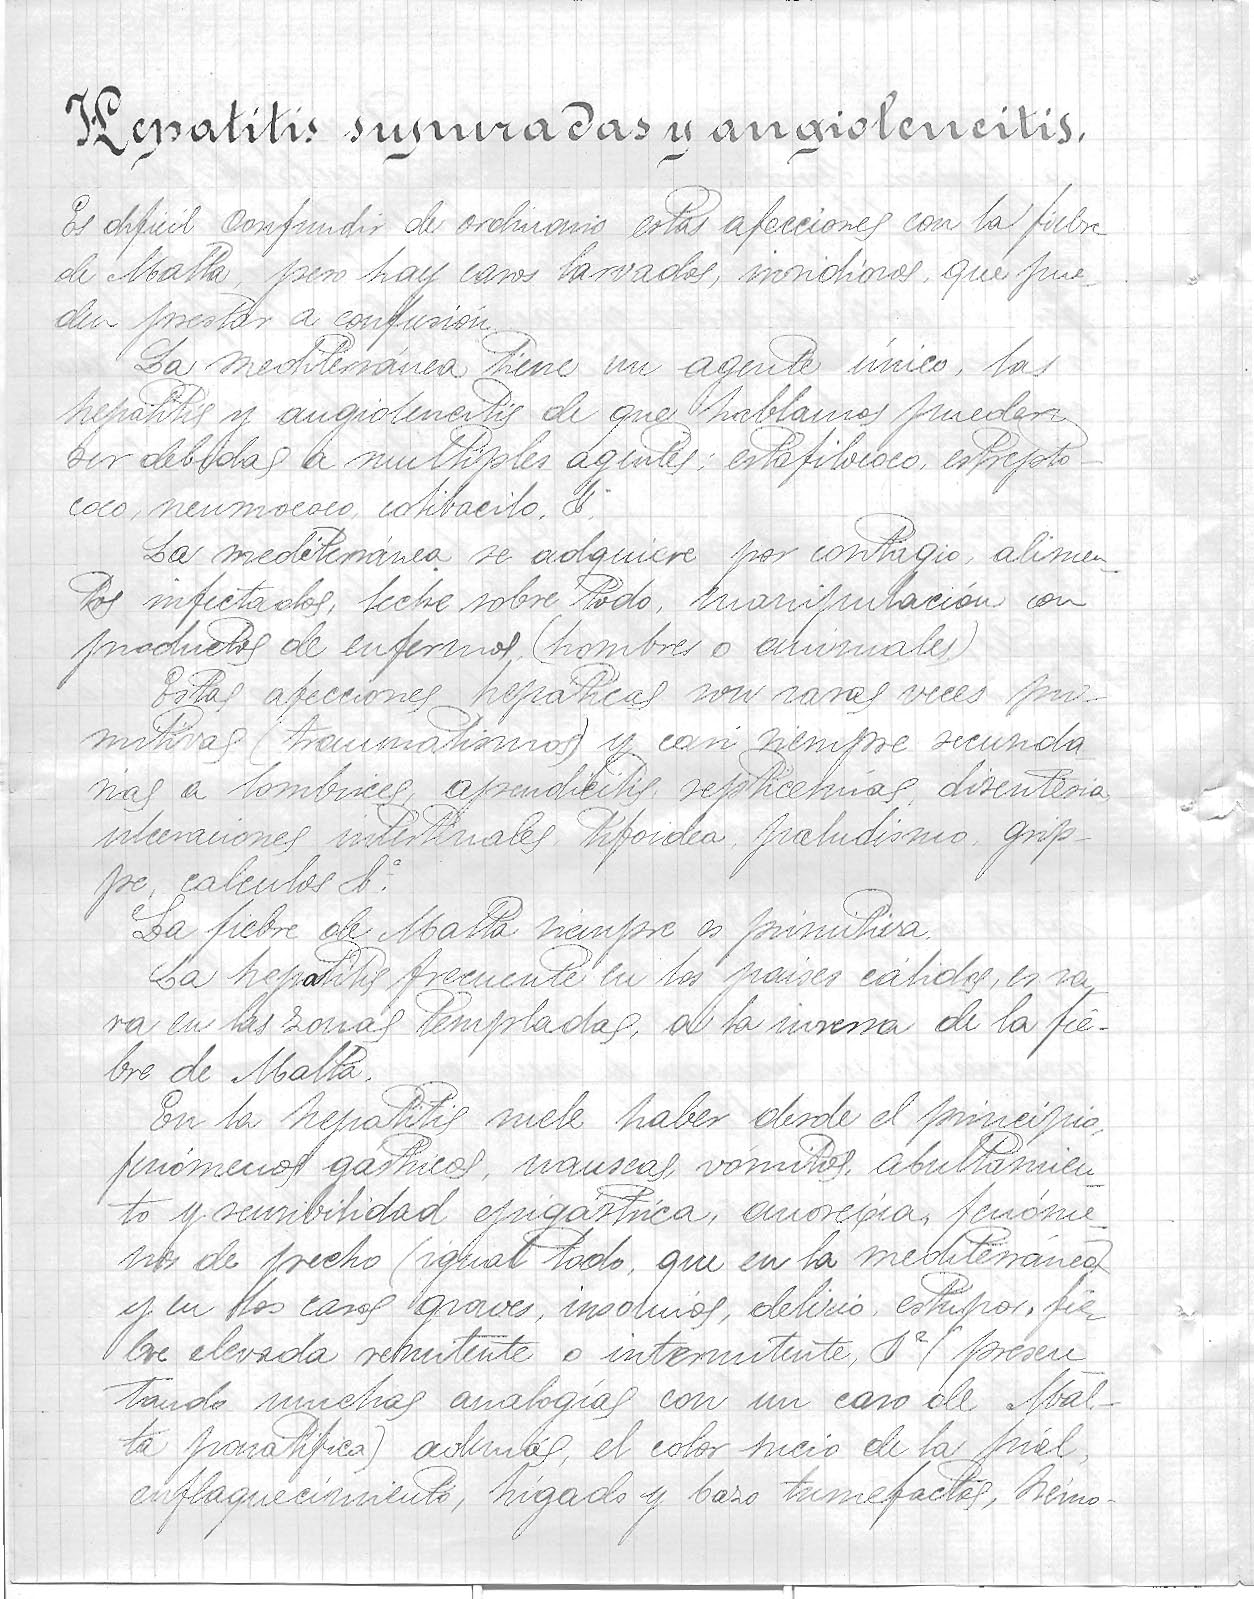 Hepatitis supuradas y angioleucitis.
Es dificil confundir de ordinario estas afecciones con la fiebre
de Malta, pero hay casos larvados, insidiosos, que pue-
den prestar a confusión.
La mediterránea tiene un agente único, las
hepatitis y angioleucitis de que hablamos pueden
ser debidas a multiples agentes; estafilococo, estrepto-
coco, neumococo, colibacilo, &ª.
La mediterránea se adquiere por contagio, alimen-
tos infectados, leche sobre todo, manipulación con
productos de enfermos, (hombres o animales)
Estas afecciones hepáticas son raras veces pri-
mitivas (traumatismos) y casi siempre secunda-
rias a lombrices, apendicitis, septicemias, disenteria,
ulceraciones intestinales, tifoidea, paludismo, grip-
pe, calculos &ª.
La fiebre de Malta siempre es primitiva.
La hepatitis frecuente en los paises cálidos, es ra-
ra en las zonas templadas, a la inversa de la fie-
bre de Malta.
En la hepatitis suele haber desde el principio,
fenómenos gastricos, nauseas, vómitos, abultamien-
to y sensibilidad epigástrica, anorexia, fenóme-
nos de pecho (igual todo, que en la mediterránea)
y en los casos graves, insomnios, delirio, estupor, fie-
bre elevada remitente o intermitente, &ª (presen-
tando muchas analogías con un caso de Mal-
ta ) además, el color sucio de la piel,
enflaquecimiento, higado y bazo tumefactos, hemo-